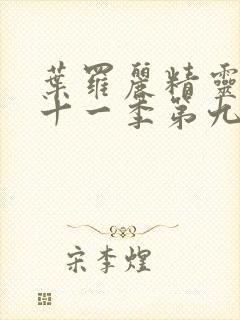 葉羅麗精靈
十一季第九
宋李煌